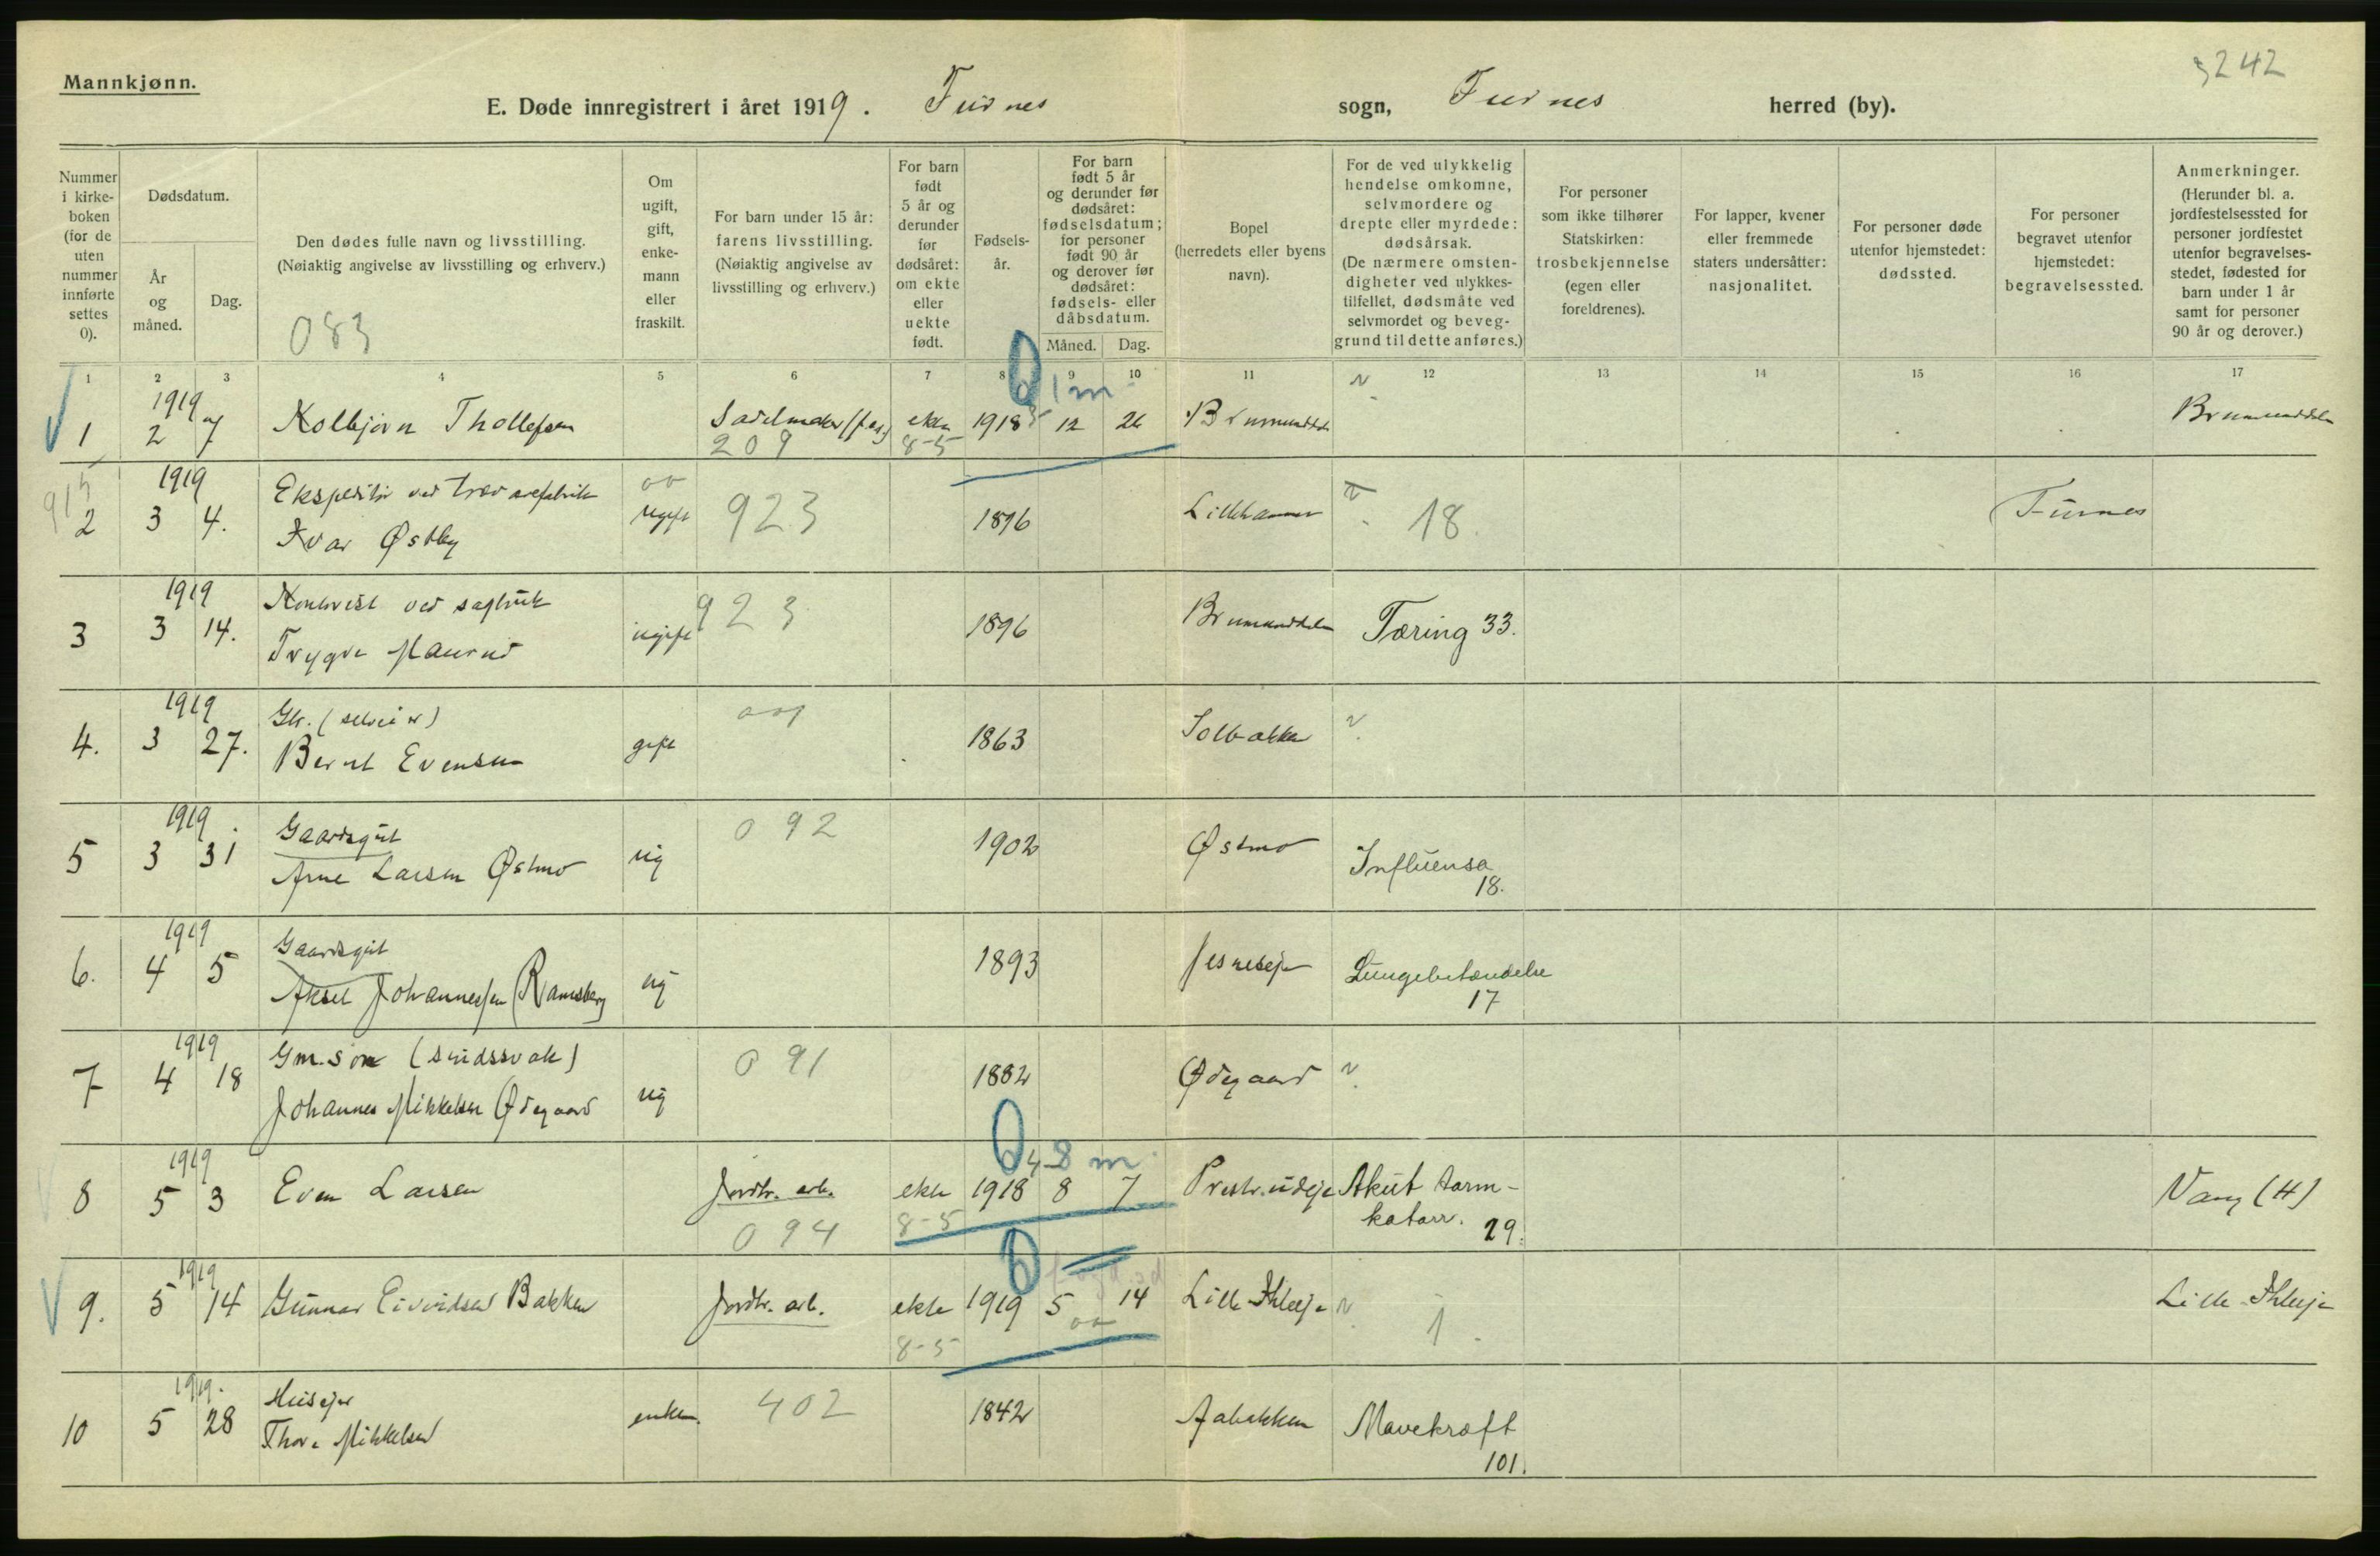 Mannkjønn.
3242
E. Døde innregistrert i året 1919. Furnes sogn, Furnes herred (by).
Nummer i kirke-boken (for de uten nummer innførte settes 0).
Dødsdatum.
År og måned.
Dag.
Den dødes fulle navn og livsstilling.
(Nøiaktig angivelse av livsstilling og erhverv.)
083
Om ugift, gift, enke-mann eller fraskilt.
For barn under 15 år: farens livsstilling.
(Nøiaktig angivelse av livsstilling og erhverv.)
For barn født 5 år og derunder før dødsåret: om ekte eller uekte født.
Fødsels-år.
For barn født 5 år og derunder før dødsåret: fødselsdatum; for personer født 90 år og derover før dødsåret: fødsels- eller dåbsdatum.
Måned. Dag.
Bopel (herredets eller byens navn).
For de ved ulykkelig hendelse omkomne, selvmordere og drepte eller myrdede: dødsårsak.
(De nærmere omsten-digheter ved ulykkes-tilfellet, dødsmåte ved selvmordet og beveg-grund til dette anføres.)
For personer som ikke tilhører Statskirken: trosbekjennelse (egen eller foreldrenes).
For lapper, kvener eller fremmede staters undersåtter: nasjonalitet.
For personer døde utenfor hjemstedet: dødssted.
For personer begravet utenfor hjemstedet: begravelsessted.
Anmerkninger.
(Herunder bl. a. jordfestelsessted for personer jordfestet utenfor begravelses-stedet, fødested for barn under 1 år samt for personer 90 år og derover.)
1 2 3 4 5 6 7 8 9 10 11 12 13 14 15 16 17
1 m
1919
1 2 7 Kolbjørn Thollefsen ekte 1918 12 26 Brumunddalen Brumunddalen
209 8-5
1919 Ekspeditør ved trævarefabrik
2 3 4. Ivar Østby ugift 923 1896 Lillehammer 18. Furnes
1919 Kontorist ved sagbruk 923
3 3 14. Trygve Maurud ugift 1896 Brumunddalen Tæring 33.
1919 Gbr. (selveier)
4. 3 27. Bernt Evensen gift 1863 Solbakken
1919 Gaardsgut 092
5 3 31 Arne Larsen Østmo ug 1902 Østmo Influensa
18.
1919 Gaardsgut
6. 4 5 Aksel Johannessen (Ramsberg) ug 1893 Jesneseje Lungebetændelse
17
1919 Gm. søn (sindssvak) 091
7 4 18 Johannes Mikkelsen Ødegaard ug 1882 Ødegaard
8 m
1919
8 5 3 Even Larsen Jordbr. arb. ekte 1918 8 7 Akut tarm-
katarr. 29. Vang (H)
094 8-5
1919
9. 5 14 Gunnar Eivindsen Bakken Jordbr. arb. ekte 1919 5 14 1.
8-5
1919. Huseier
10 5 28 Thore Mikkelsen enkem. 402 1842 Aabakken Mavekræft
101.